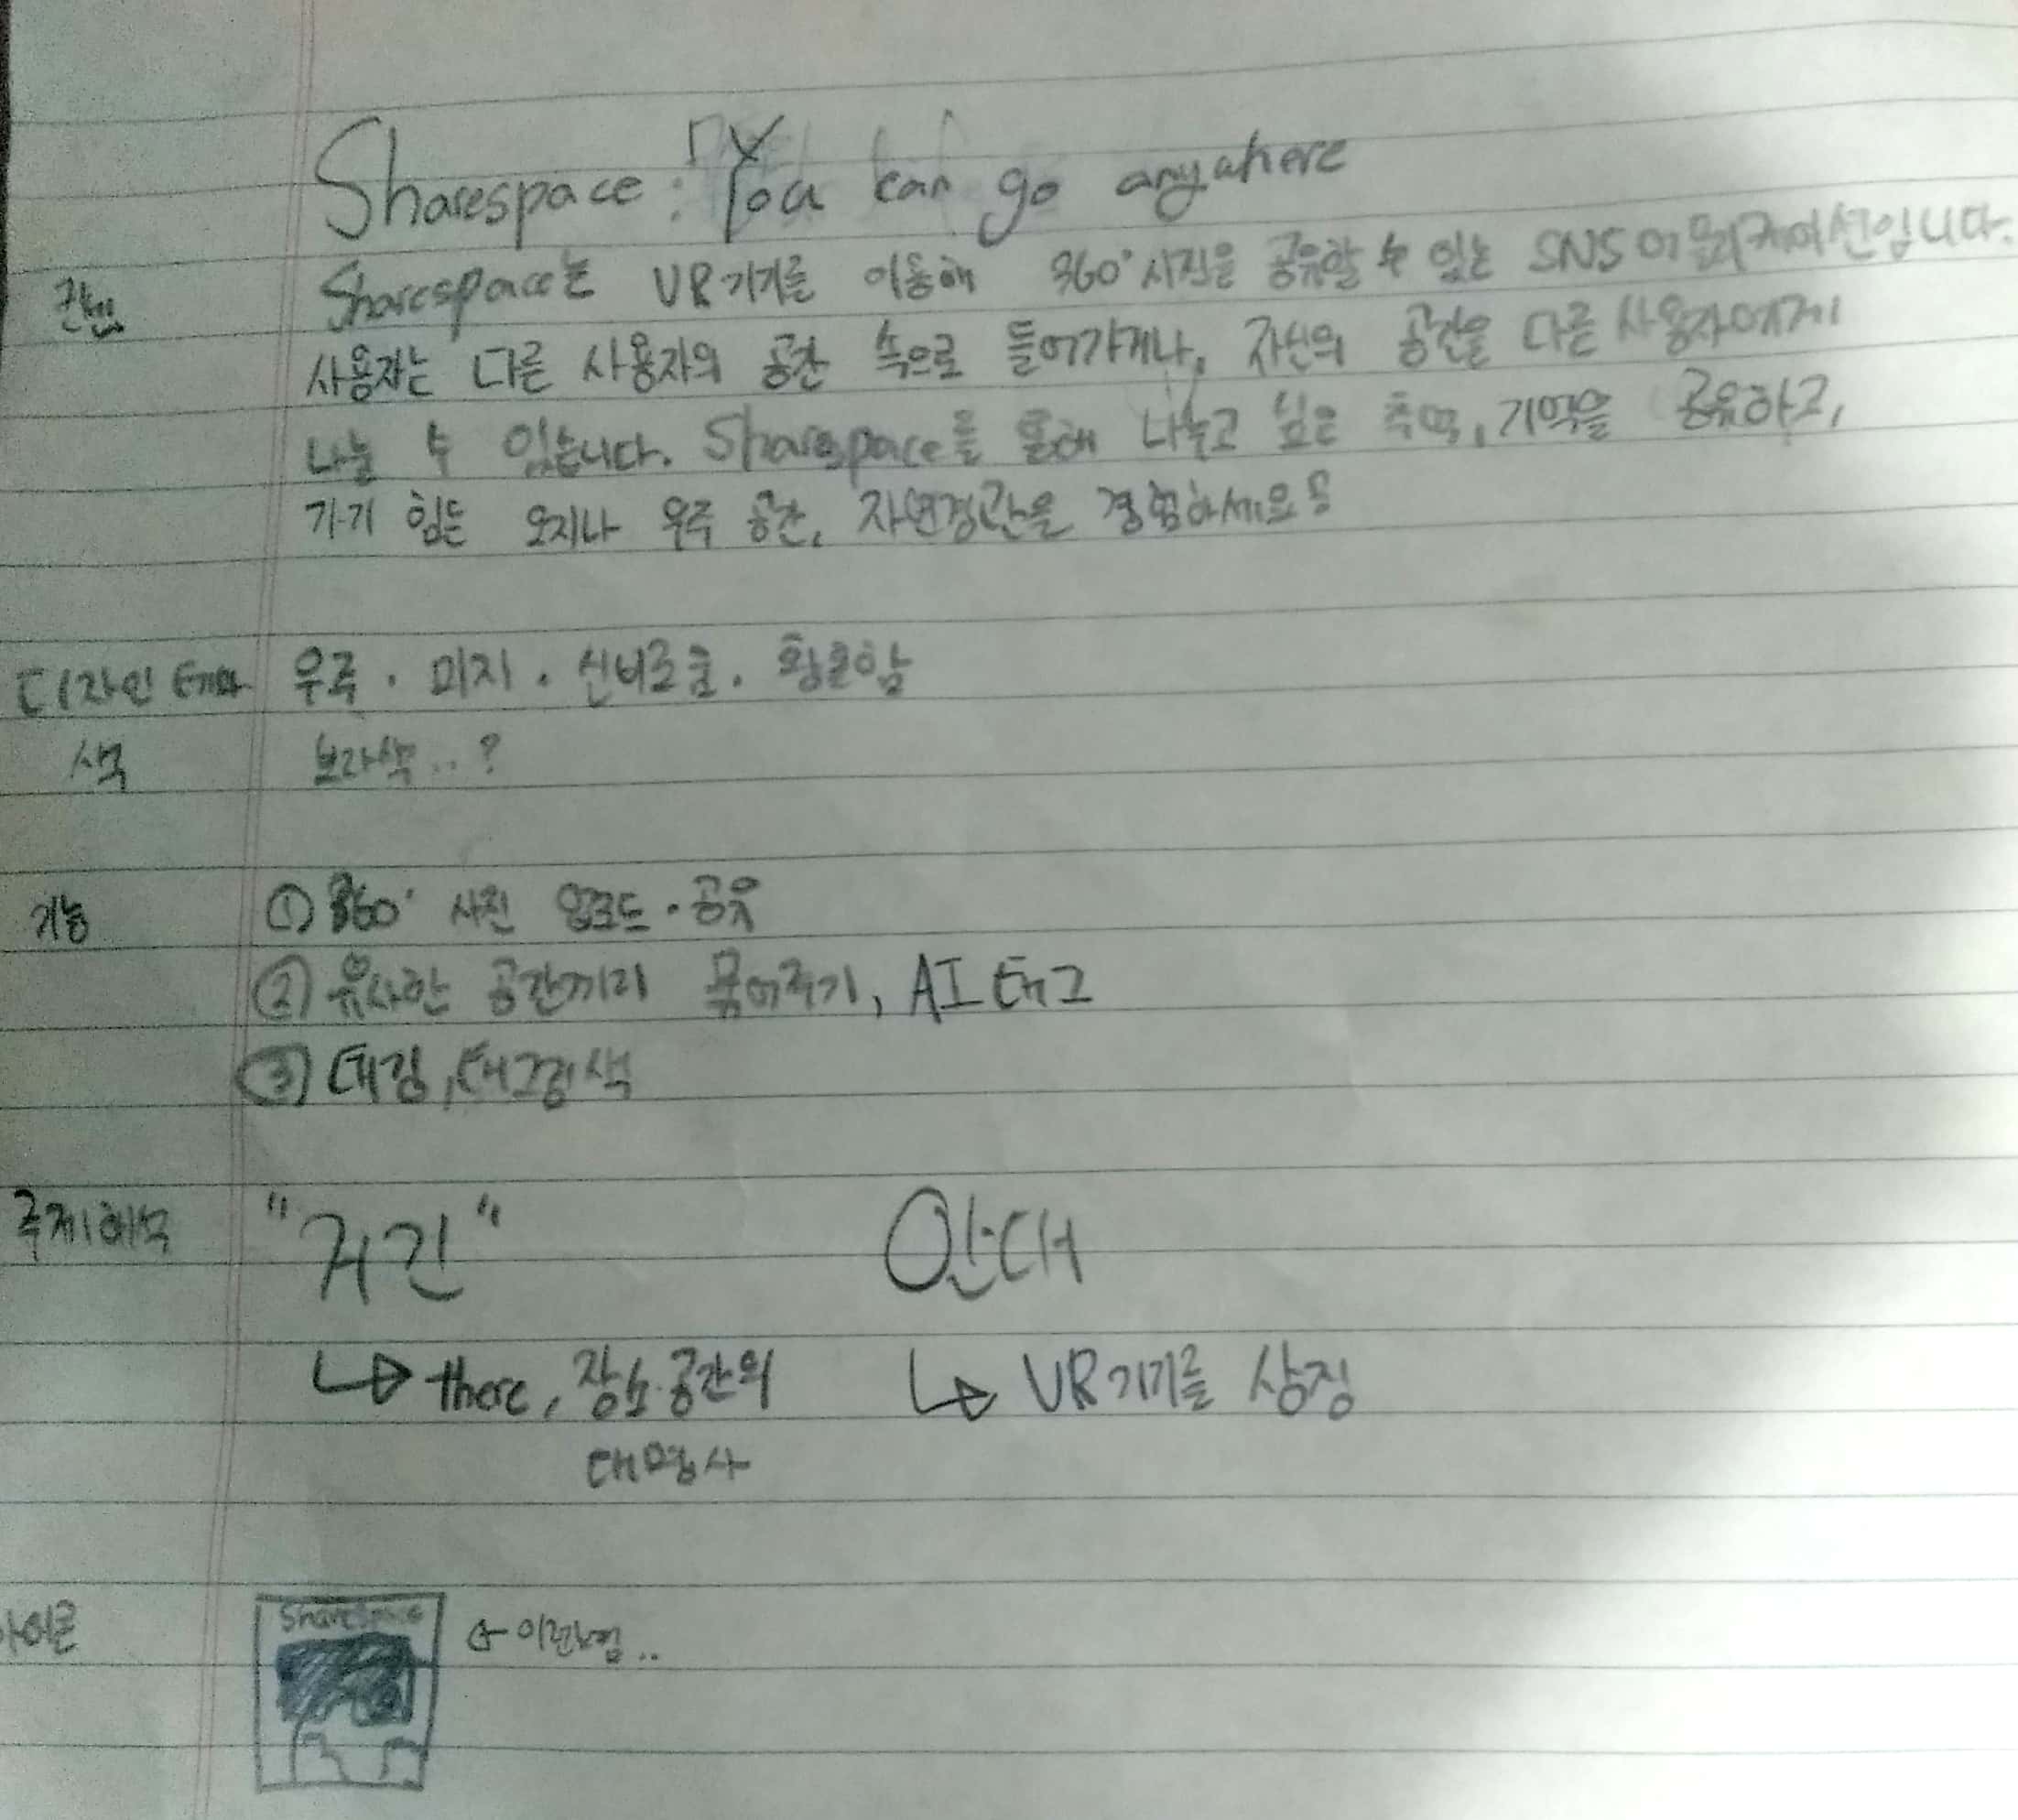 Sharespace: You can go anywhere
컨셉 Sharespace는 VR기기를 이용해 360° 사진을 공유할 수 있는 SNS 어플리케이션입니다.
사용자는 다른 사용자의 공간 속으로 들어가거나, 자신의 공간을 다른 사용자에게
나눌 수 있습니다. Sharespace를 통해 나누고 싶은 추억, 기억을 공유하고,
가기 힘든 오지나 우주 공간, 자연경관을 경험하세요
디자인 테마 우주 · 미지 · 신비로움 · 황홀함
색 보라색..?
기능 ① 360° 사진 업로드 · 공유
② 유사한 공간끼리 묶어주기, AI 태그
③ 태깅, 태그검색
주제해석 "거긴" 안대
there, 장소·공간의 VR기기를 상징
대명사
아이콘 Sharespace 이런느낌..